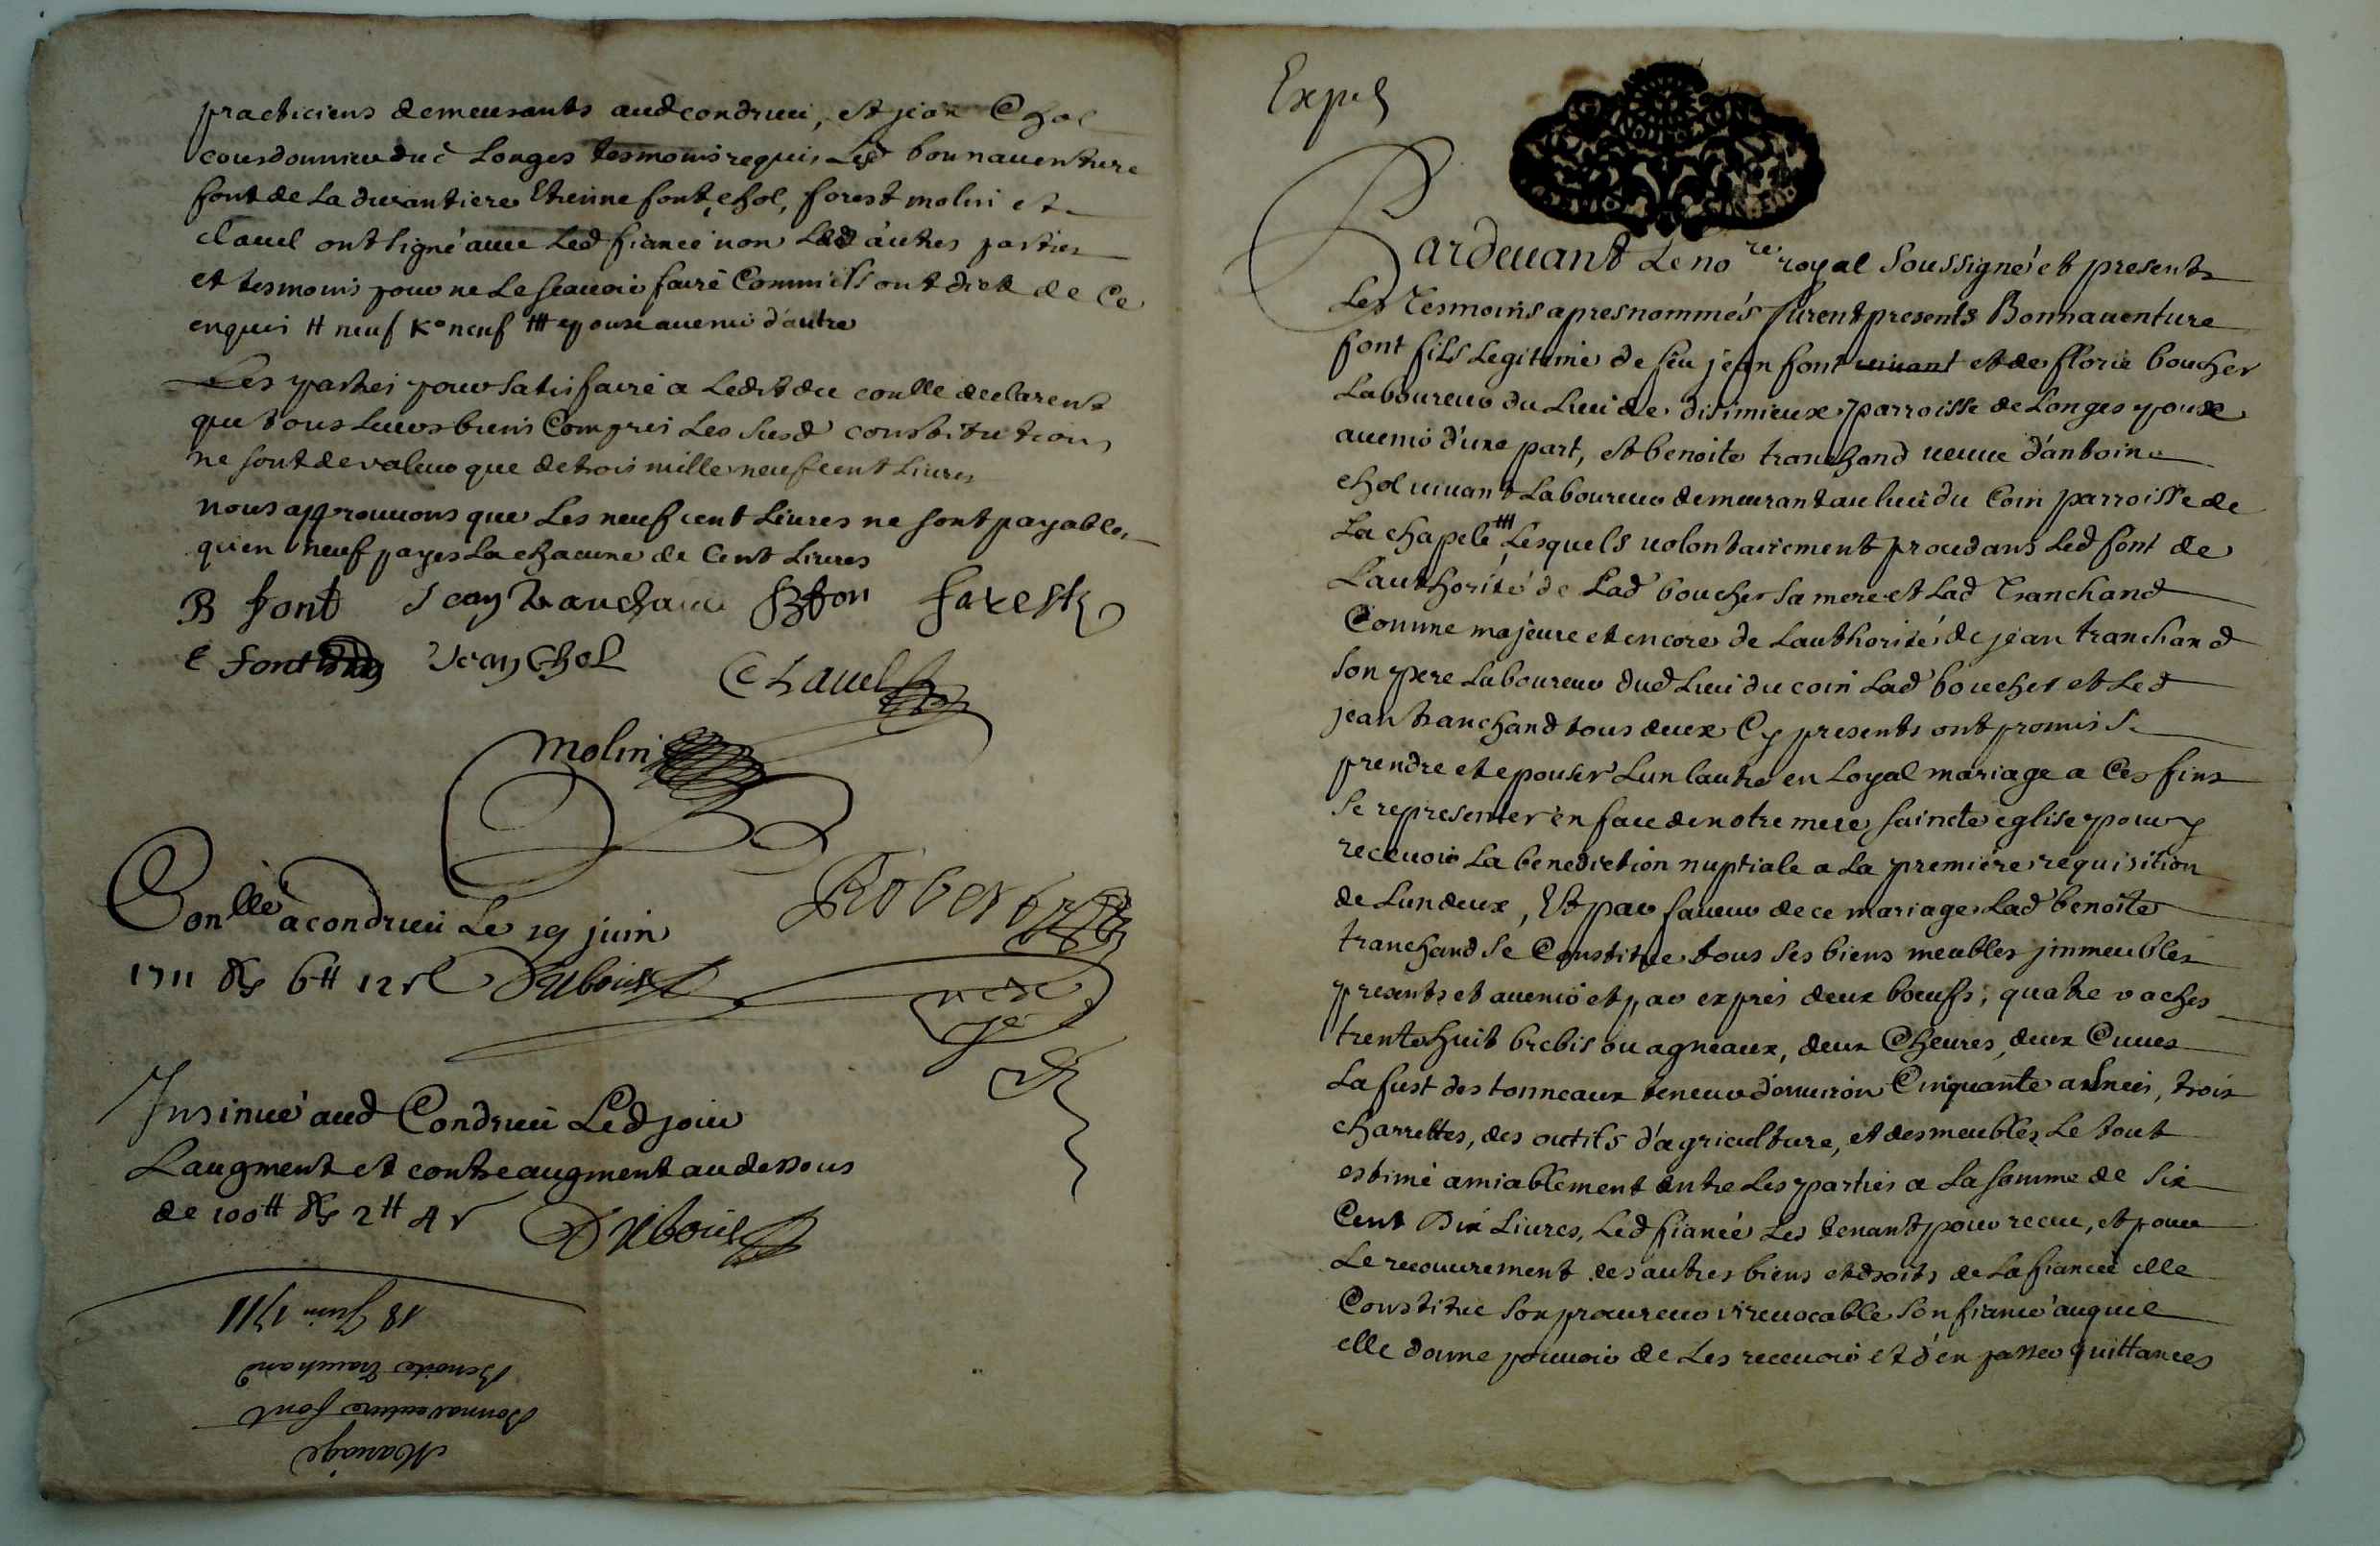 practiciens demeurants aud condrieu, et jean Chol
courdonnier dud Longes tesmoins requis Lesd bonnauenture
font de La durantiere Etienne font, chol, forest molin et
clauel ont signé auec Led fiancé non Lesd autres parties
et tesmoins pour ne Le scauoir faire Comme ils ont dict de Ce
enquis # neuf Ko neuf ## epouse auenir d'autre
Les parties pour satisfaire a Ledit du conlle declarent
que tous Leurs biens Compris Les susd constitution
ne sont de valeur que de trois mille neuf cent Liures
nous approuuons que Les neuf cent Liures ne sont payables
qu'en neuf payes La chacune de Cent Liures
B font Jean tranchand forest
E font Jean Chol Clauel
molin
Conllé a condrieu Le 19 juin
1711 6tt 12 s Dubouis
Robert
Insinué aud Condrieu Led jour
Laugment et contreaugment au dessous
de 100tt 2tt 4 s Dubouis
Mariage
Bonnauenture font
Benoite tranchand
18 Juin 1711
Exped
Pardeuant Le nore royal soussigné et presents
Les Tesmoins apres nommés furent presents Bonnauenture
font fils Legitime de feu jean font viuant et de florie boucher
Laboureur du Lieu de disimieux parroisse de Longes epoux
auenir d'une part, et benoite tranchand veuue d'antoine
chol viuant Laboureur demeurant au lieu du Coin parroisse de
La chapele ## Lesquels volontairement proucedans Led font de
L'authorité de Lad boucher sa mere et Lad Tranchand
Comme majeure et encore de Lauthorité de jean tranchand
son pere Laboureur dud Lieu du coin Lad boucher et Led
jean tranchand tous deux Cy presents ont promis se
prendre et epouser Lun lautre en Loyal mariage a Ces fins
se representer en face de notre mere saincte eglise pour y
receuoir La benediction nuptiale a La premiere requisition
de Lun deux, Et par faueur de ce mariage Lad benoite
tranchand se Constitue tous ses biens meubles jmmeubles
presents et auenir et par expres deux bœufs, quatre vaches
trente huit brebis ou agneaux, deux Cheures, deux Cuues
La fust des tonneaux teneur d'enuiron Cinquante asnees, trois
charrettes, des outils d'agriculture, et des meubles Le tout
estimé amiablement entre Les parties a La somme de six
Cent Dix Liures, Led fiancé Les tenant pour receu, et pour
Le recouurement des autres biens et droits de La fiancée elle
Constitue son procureur irreuocable son fiancé auquel
elle donne pouuoir de Les receuoir et d'en passer quittances